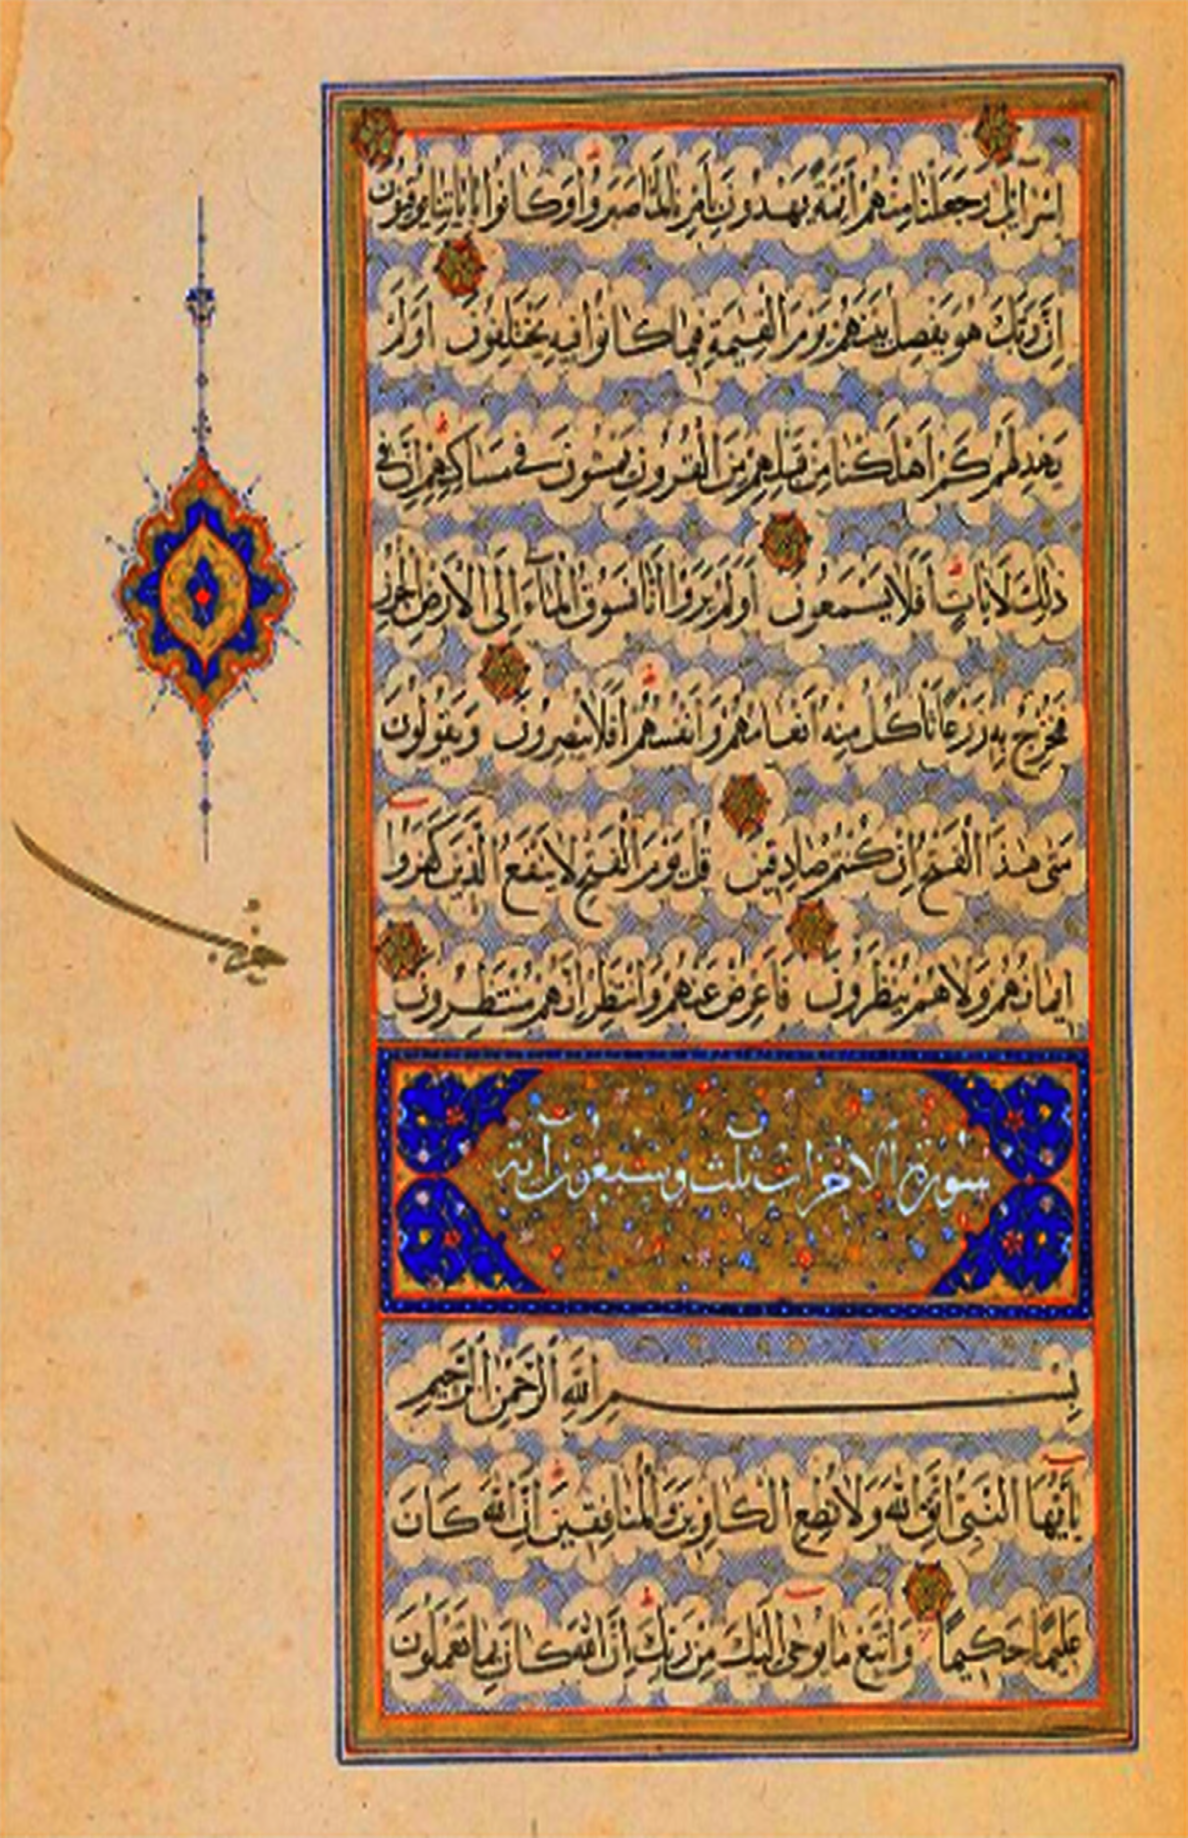 إِسْرَائِيلَ وَجَعَلْنَا مِنْهُمْ أَئِمَّةً يَهْدُونَ بِأَمْرِنَا لَمَّا صَبَرُوا وَكَانُوا بِآيَاتِنَا يُوقِنُونَ
إِنَّ رَبَّكَ هُوَ يَفْصِلُ بَيْنَهُمْ يَوْمَ الْقِيٰمَةِ فِيمَا كَانُوا فِيهِ يَخْتَلِفُونَ أَوَلَمْ
يَهْدِ لَهُمْ كَمْ أَهْلَكْنَا مِنْ قَبْلِهِمْ مِنَ الْقُرُونِ يَمْشُونَ فِي مَسَاكِنِهِمْ إِنَّ فِي
ذٰلِكَ لَآيَاتٍ أَفَلَا يَسْمَعُونَ أَوَلَمْ يَرَوْا أَنَّا نَسُوقُ الْمَاءَ إِلَى الْأَرْضِ الْجُرُزِ
فَنُخْرِجُ بِهِ زَرْعًا تَأْكُلُ مِنْهُ أَنْعَامُهُمْ وَأَنْفُسُهُمْ أَفَلَا يُبْصِرُونَ وَيَقُولُونَ
مَتٰى هٰذَا الْفَتْحُ إِنْ كُنْتُمْ صَادِقِينَ قُلْ يَوْمَ الْفَتْحِ لَا يَنْفَعُ الَّذِينَ كَفَرُوا
إِيمَانُهُمْ وَلَا هُمْ يُنْظَرُونَ فَأَعْرِضْ عَنْهُمْ وَانْتَظِرْ إِنَّهُمْ مُنْتَظِرُونَ
حزب
سورة الاحزاب ثلث وسبعون اية
بِسْمِ اللّٰهِ الرَّحْمٰنِ الرَّحِيمِ
يَا أَيُّهَا النَّبِيُّ اتَّقِ اللّٰهَ وَلَا تُطِعِ الْكَافِرِينَ وَالْمُنَافِقِينَ إِنَّ اللّٰهَ كَانَ
عَلِيمًا حَكِيمًا وَاتَّبِعْ مَا يُوحٰى إِلَيْكَ مِنْ رَبِّكَ إِنَّ اللّٰهَ كَانَ بِمَا تَعْمَلُونَ